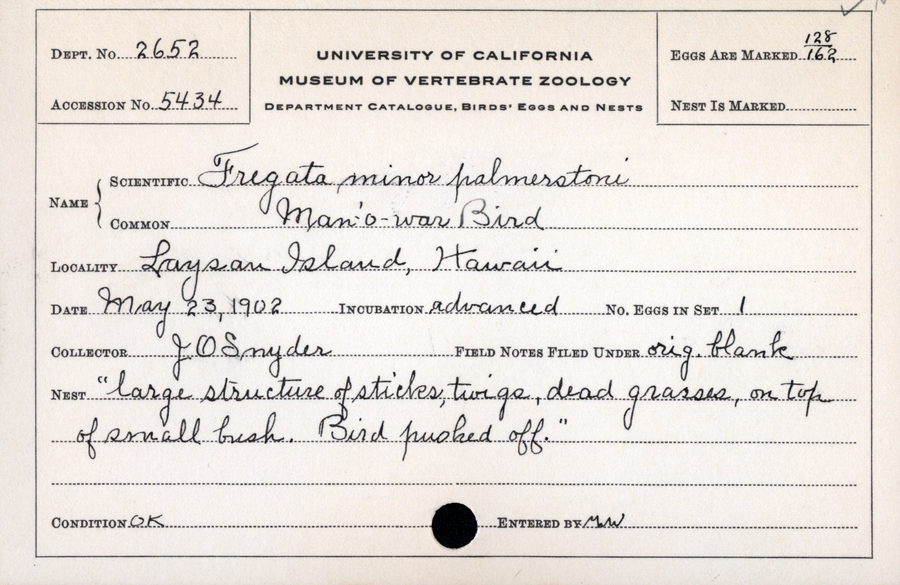 DEPT. NO. 2652
ACCESSION NO. 5434
UNIVERSITY OF CALIFORNIA
MUSEUM OF VERTEBRATE ZOOLOGY
DEPARTMENT CATALOGUE, BIRDS' EGGS AND NESTS
EGGS ARE MARKED 128/162
NEST IS MARKED
NAME
SCIENTIFIC Fregata minor palmerstoni
COMMON Man-'o-war Bird
LOCALITY Laysan Island, Hawaii
DATE May 23, 1902 INCUBATION advanced NO. EGGS IN SET 1
COLLECTOR J O Snyder FIELD NOTES FILED UNDER orig. blank
NEST "large structure of sticks, twigs, dead grasses, on top
of small bush. Bird pushed off."
CONDITION OK ENTERED BY MW